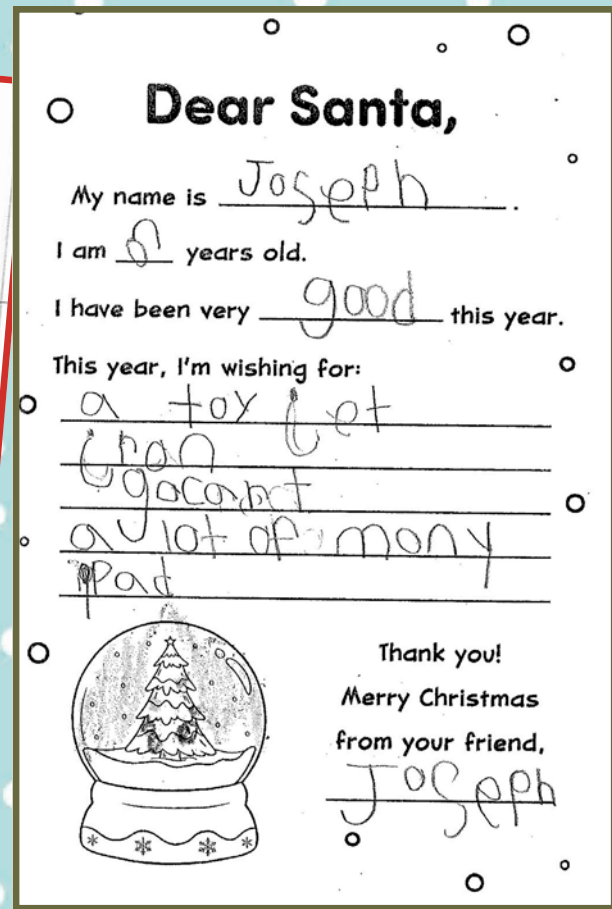 Dear Santa,
My name is Joseph.
I am years old.
I have been very good this year.
This year, I'm wishing for:
a toy jet
a lot of mony
ipad
Thank you!
Merry Christmas
from your friend,
Joseph